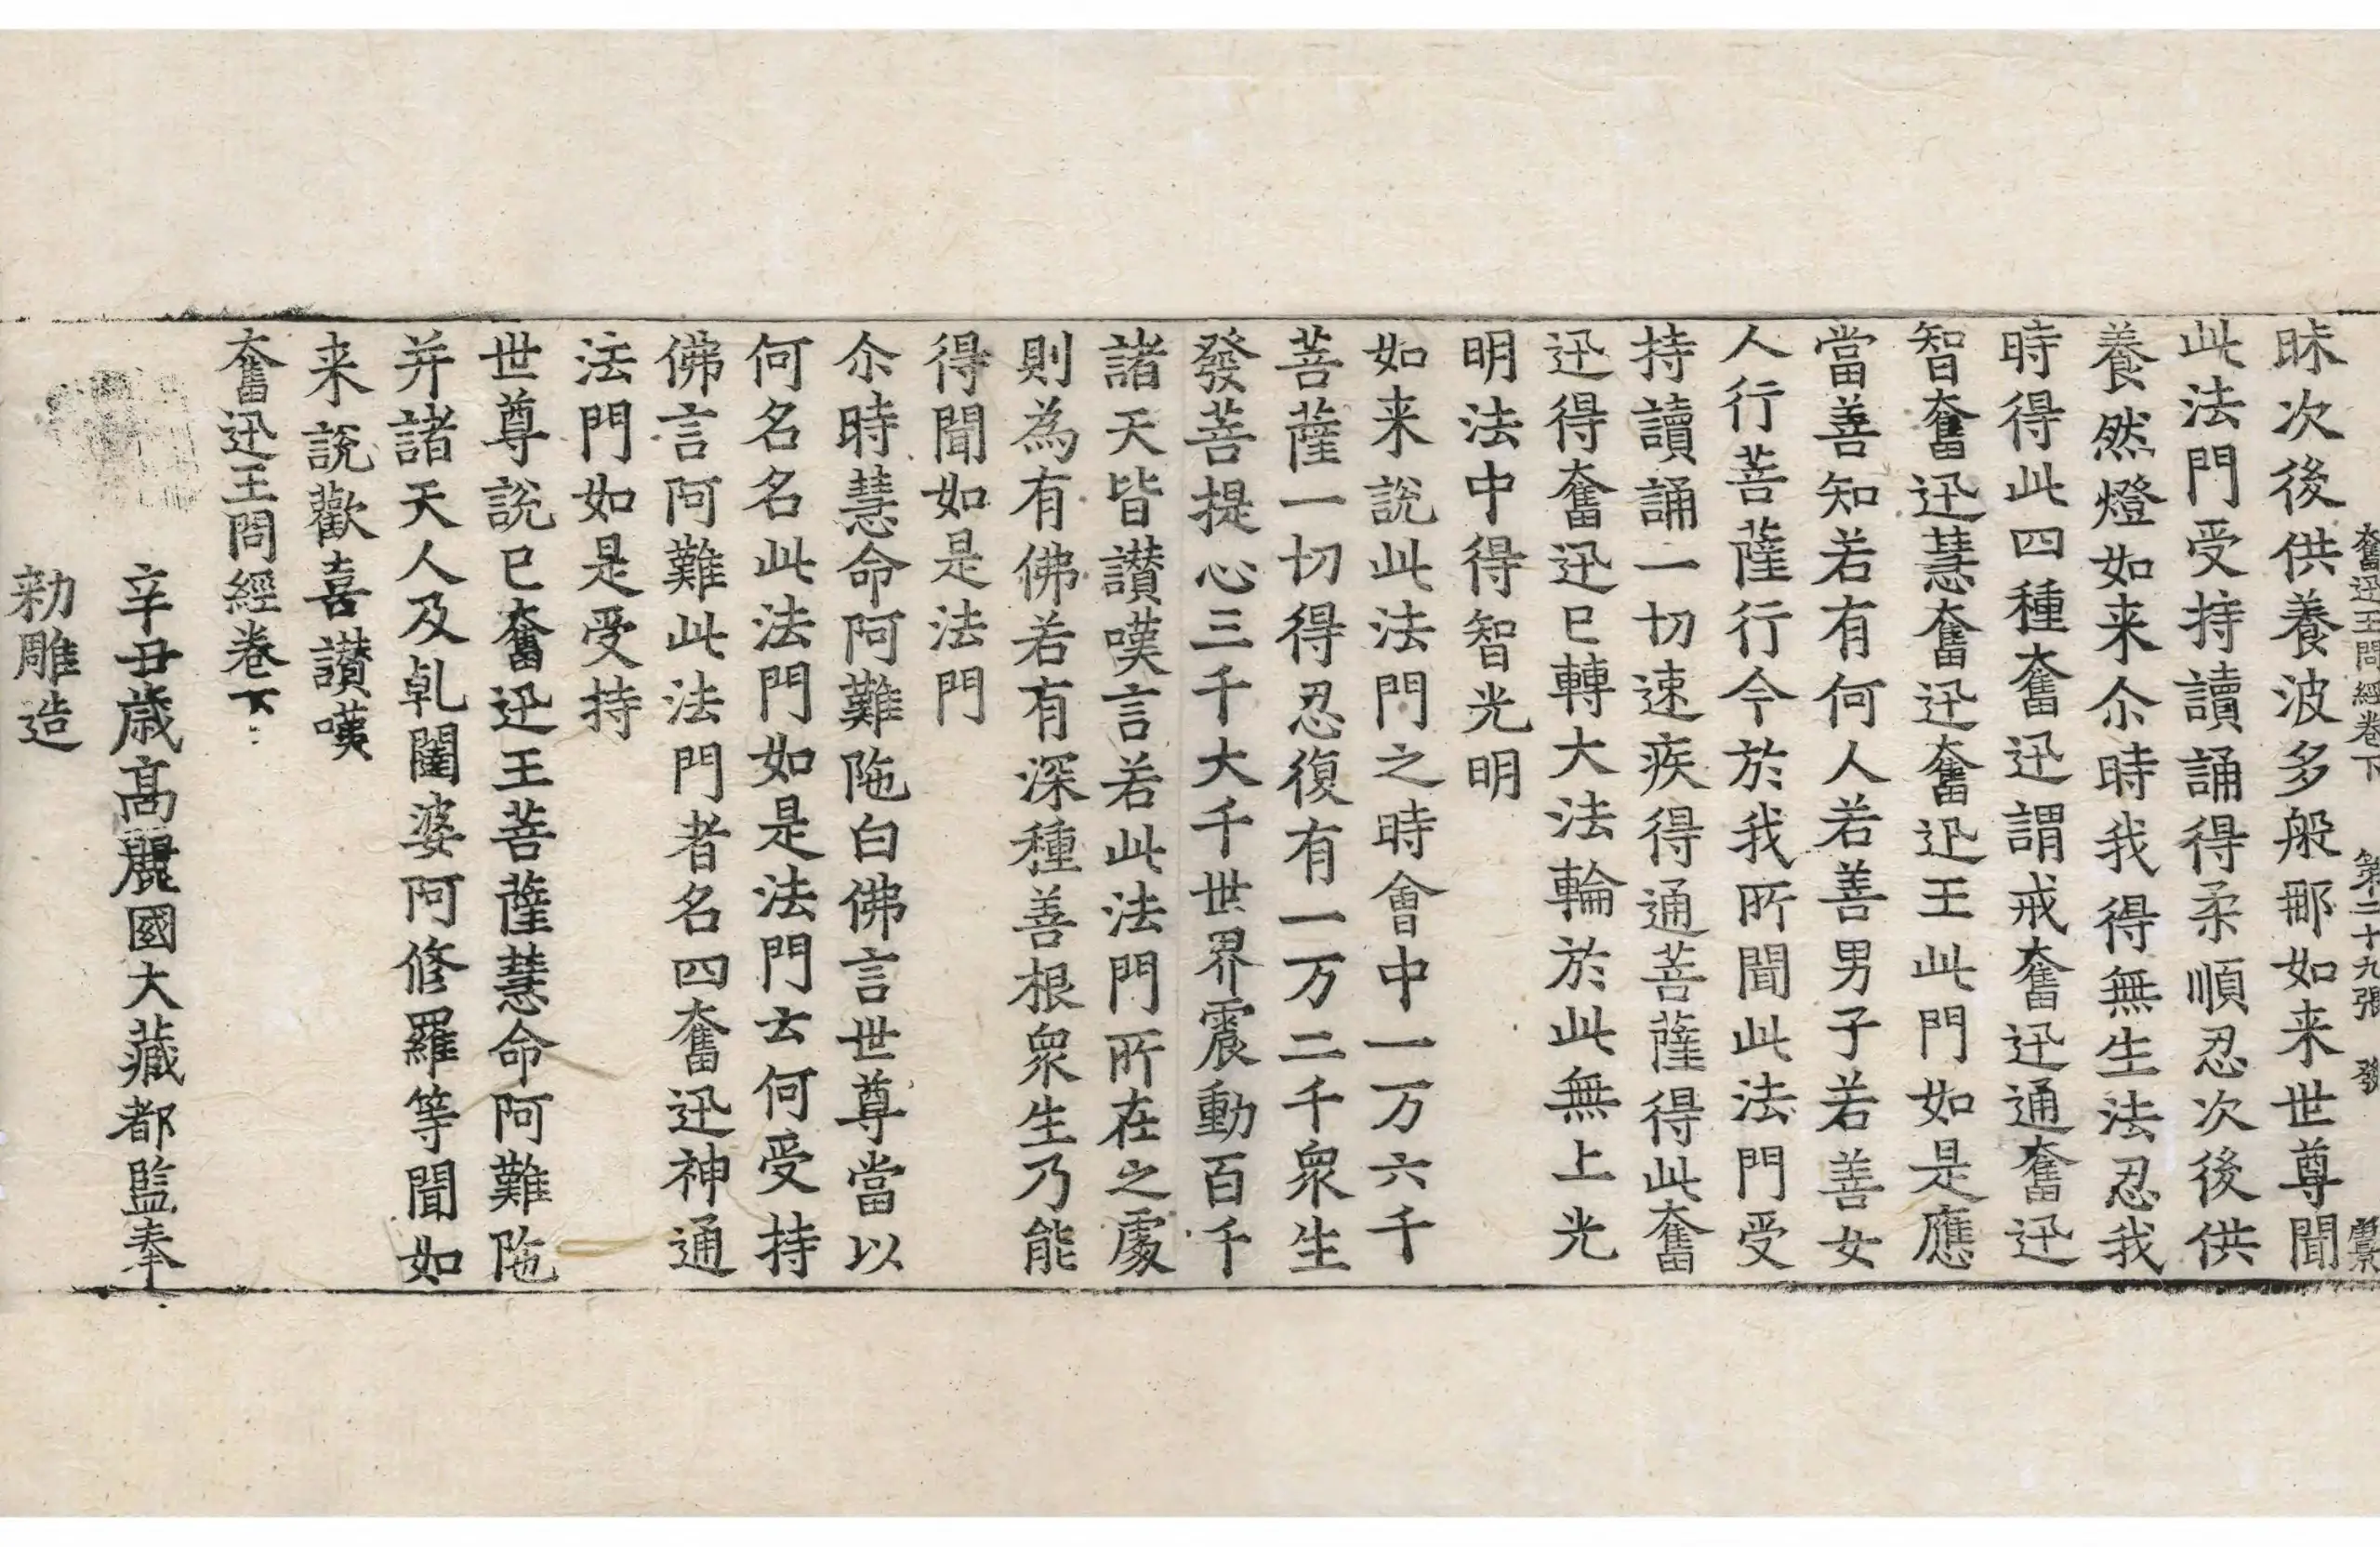 奮迅王問經卷下 第二十九張 發
昧次後供養波多般那如来世尊聞
此法門受持讀誦得柔順忍次後供
養然燈如来尒時我得無生法忍我
時得此四種奮迅謂戒奮迅通奮迅
智奮迅慧奮迅奮迅王此門如是應
當善知若有何人若善男子若善女
人行菩薩行今於我所聞此法門受
持讀誦一切速疾得通菩薩得此奮
迅得奮迅已轉大法輪於此無上光
明法中得智光明
如来說此法門之時會中一万六千
菩薩一切得忍復有一万二千衆生
發菩提心三千大千世界震動百千
諸天皆讃嘆言若此法門所在之處
則為有佛若有深種善根衆生乃能
得聞如是法門
尒時慧命阿難陁白佛言世尊當以
何名名此法門如是法門云何受持
佛言阿難此法門者名四奮迅神通
法門如是受持
世尊說已奮迅王菩薩慧命阿難陁
并諸天人及乹闥婆阿修羅等聞如
来說歡喜讃嘆
奮迅王問經卷下
辛丑歳高麗國大藏都監奉
勑雕造